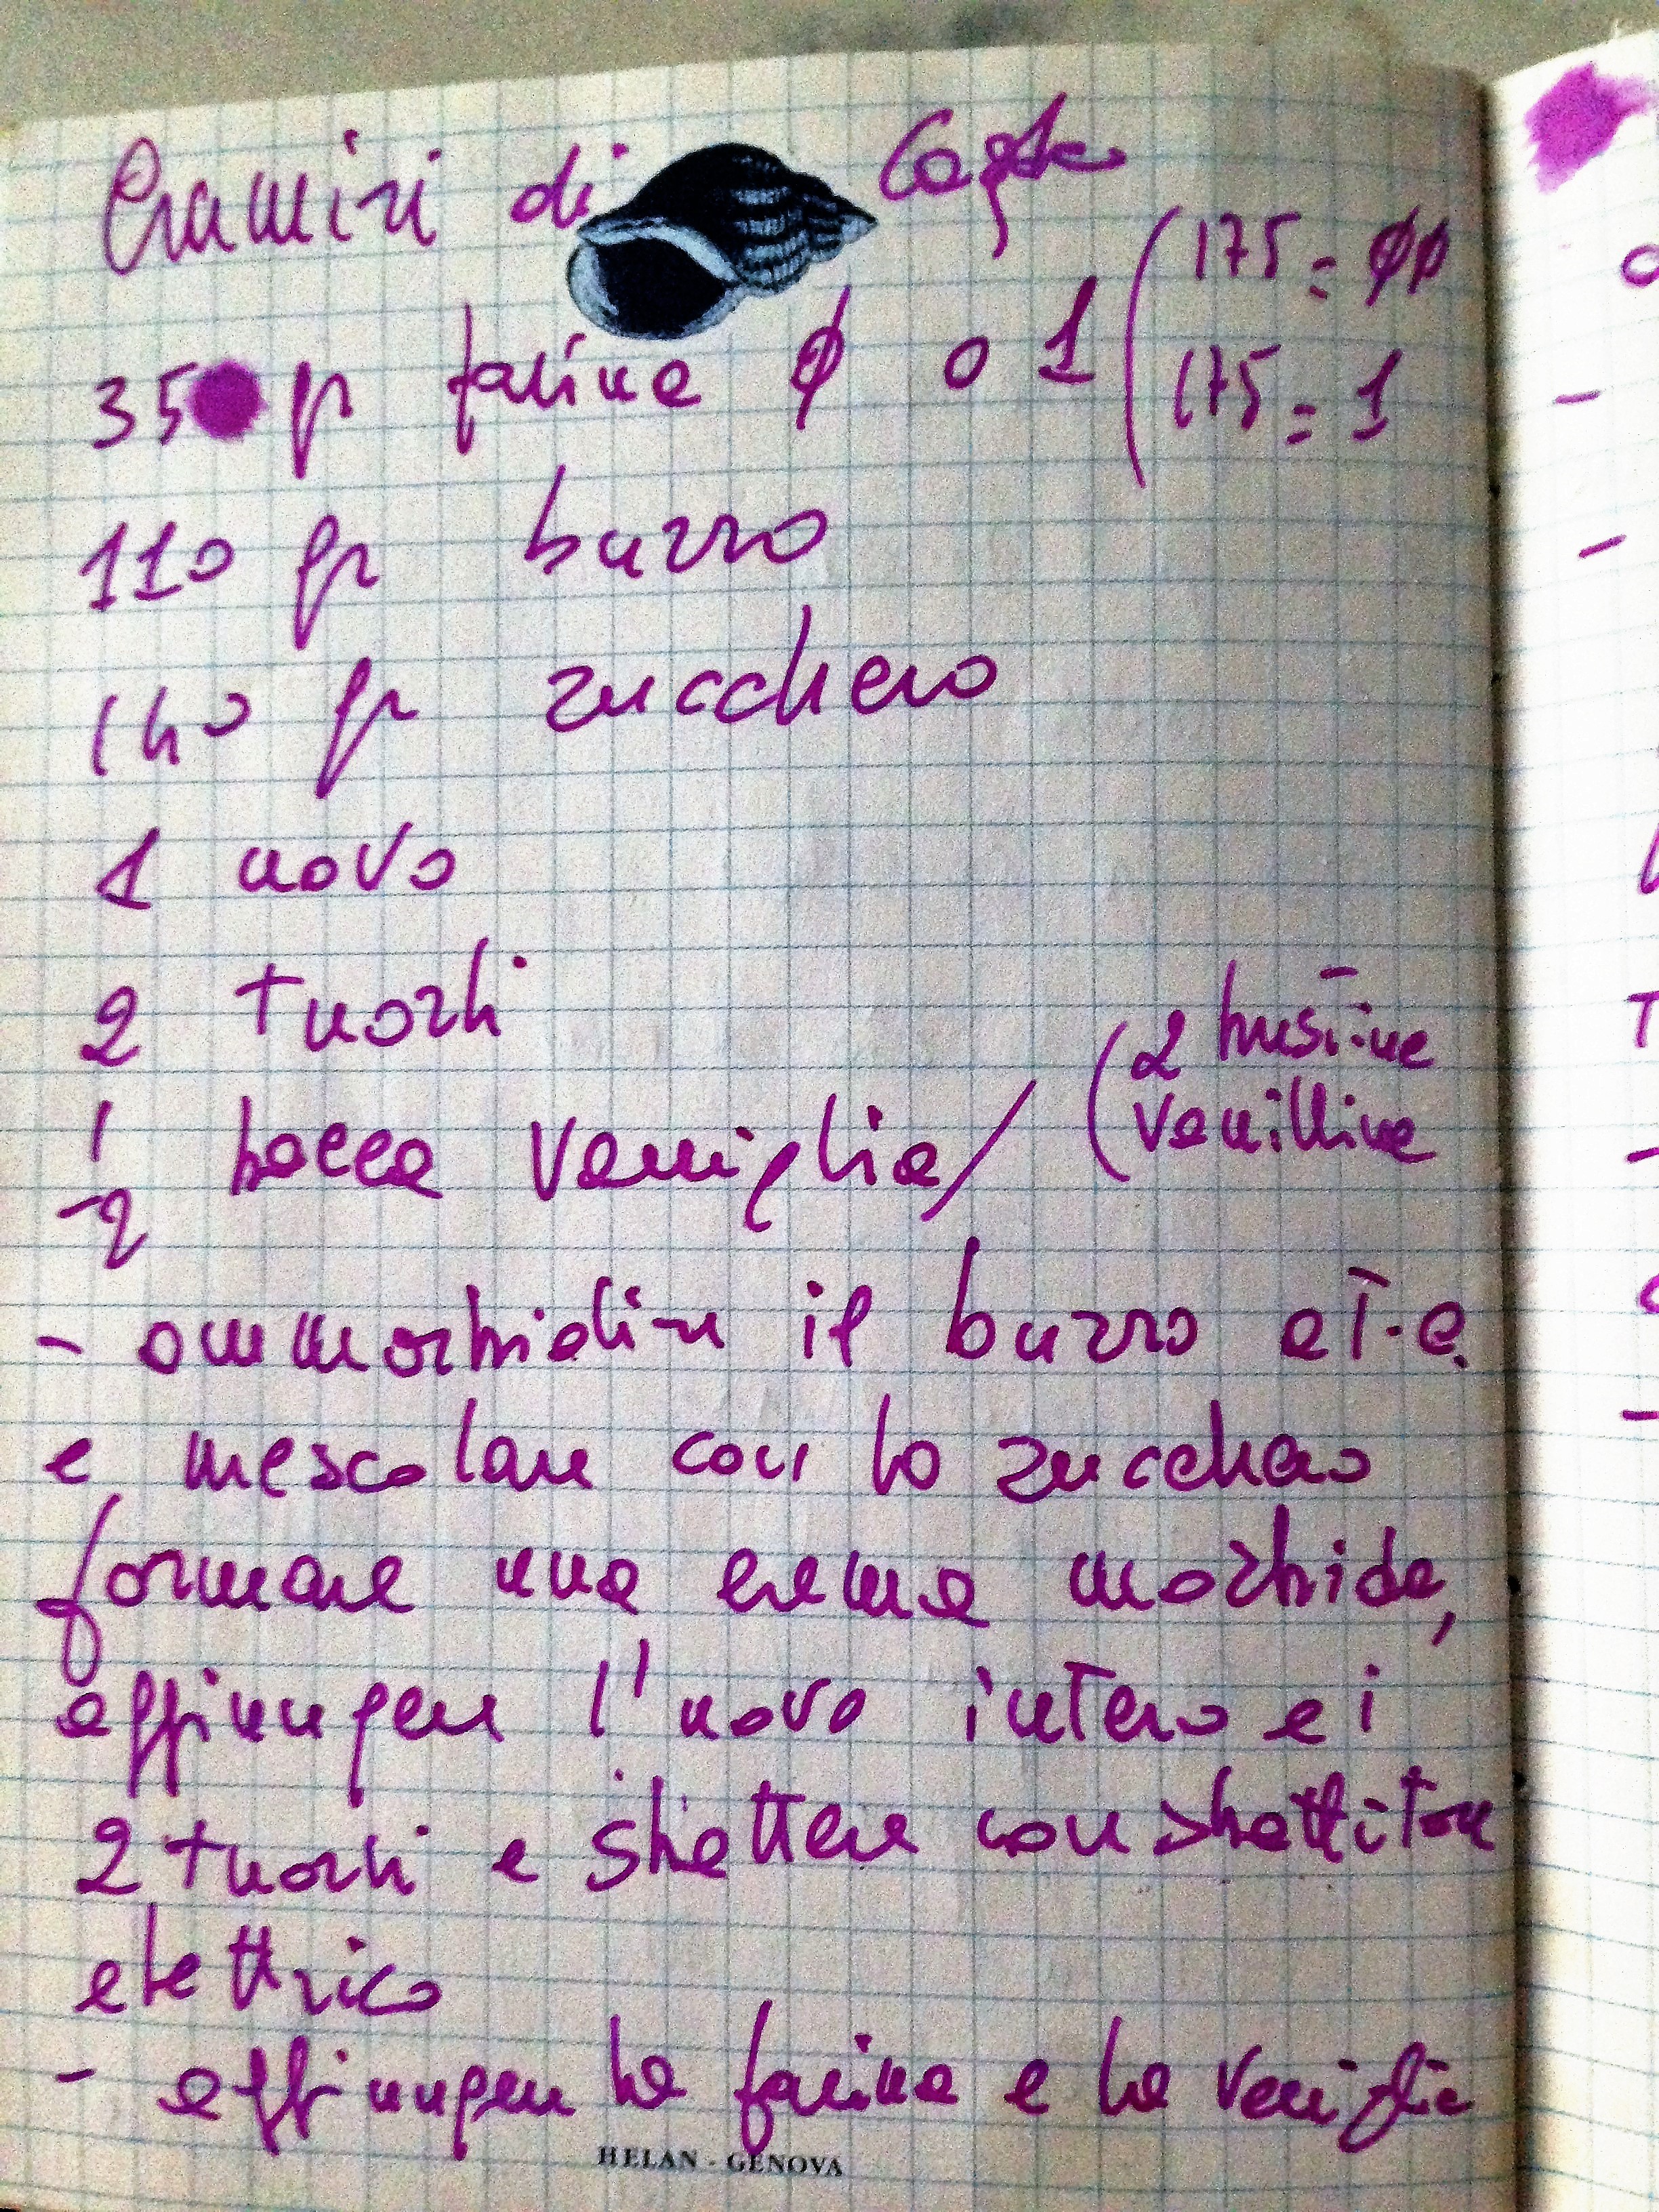 Cramiri di
(175 = 00
350 gr farina 0 o 1
175 = 1
110 gr burro
140 gr zucchero
1 uovo
2 tuorli
1/2 bacca vaniglia/ (2 bustine
vanillina
- ammorbidire il burro a T.a.
e mescolare con lo zucchero
formare una crema morbida,
aggiungere l'uovo intero e i
2 tuorli e sbattere con sbattitore
elettrico
- aggiungere la farina e la vaniglia
HELAN - GENOVA